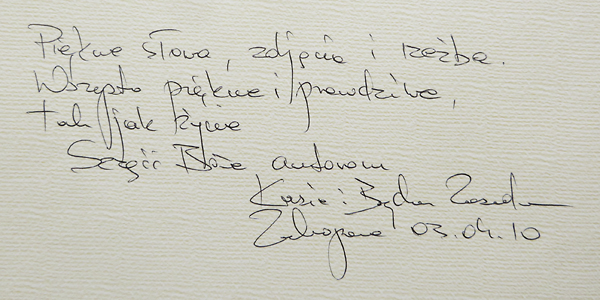 Piękne słowa, zdjęcia i rzeźba.
Wszystko piękne i prawdziwe,
tak jak życie
Szczęść Boże autorom
Kasia i
Zakopane 03.04.10